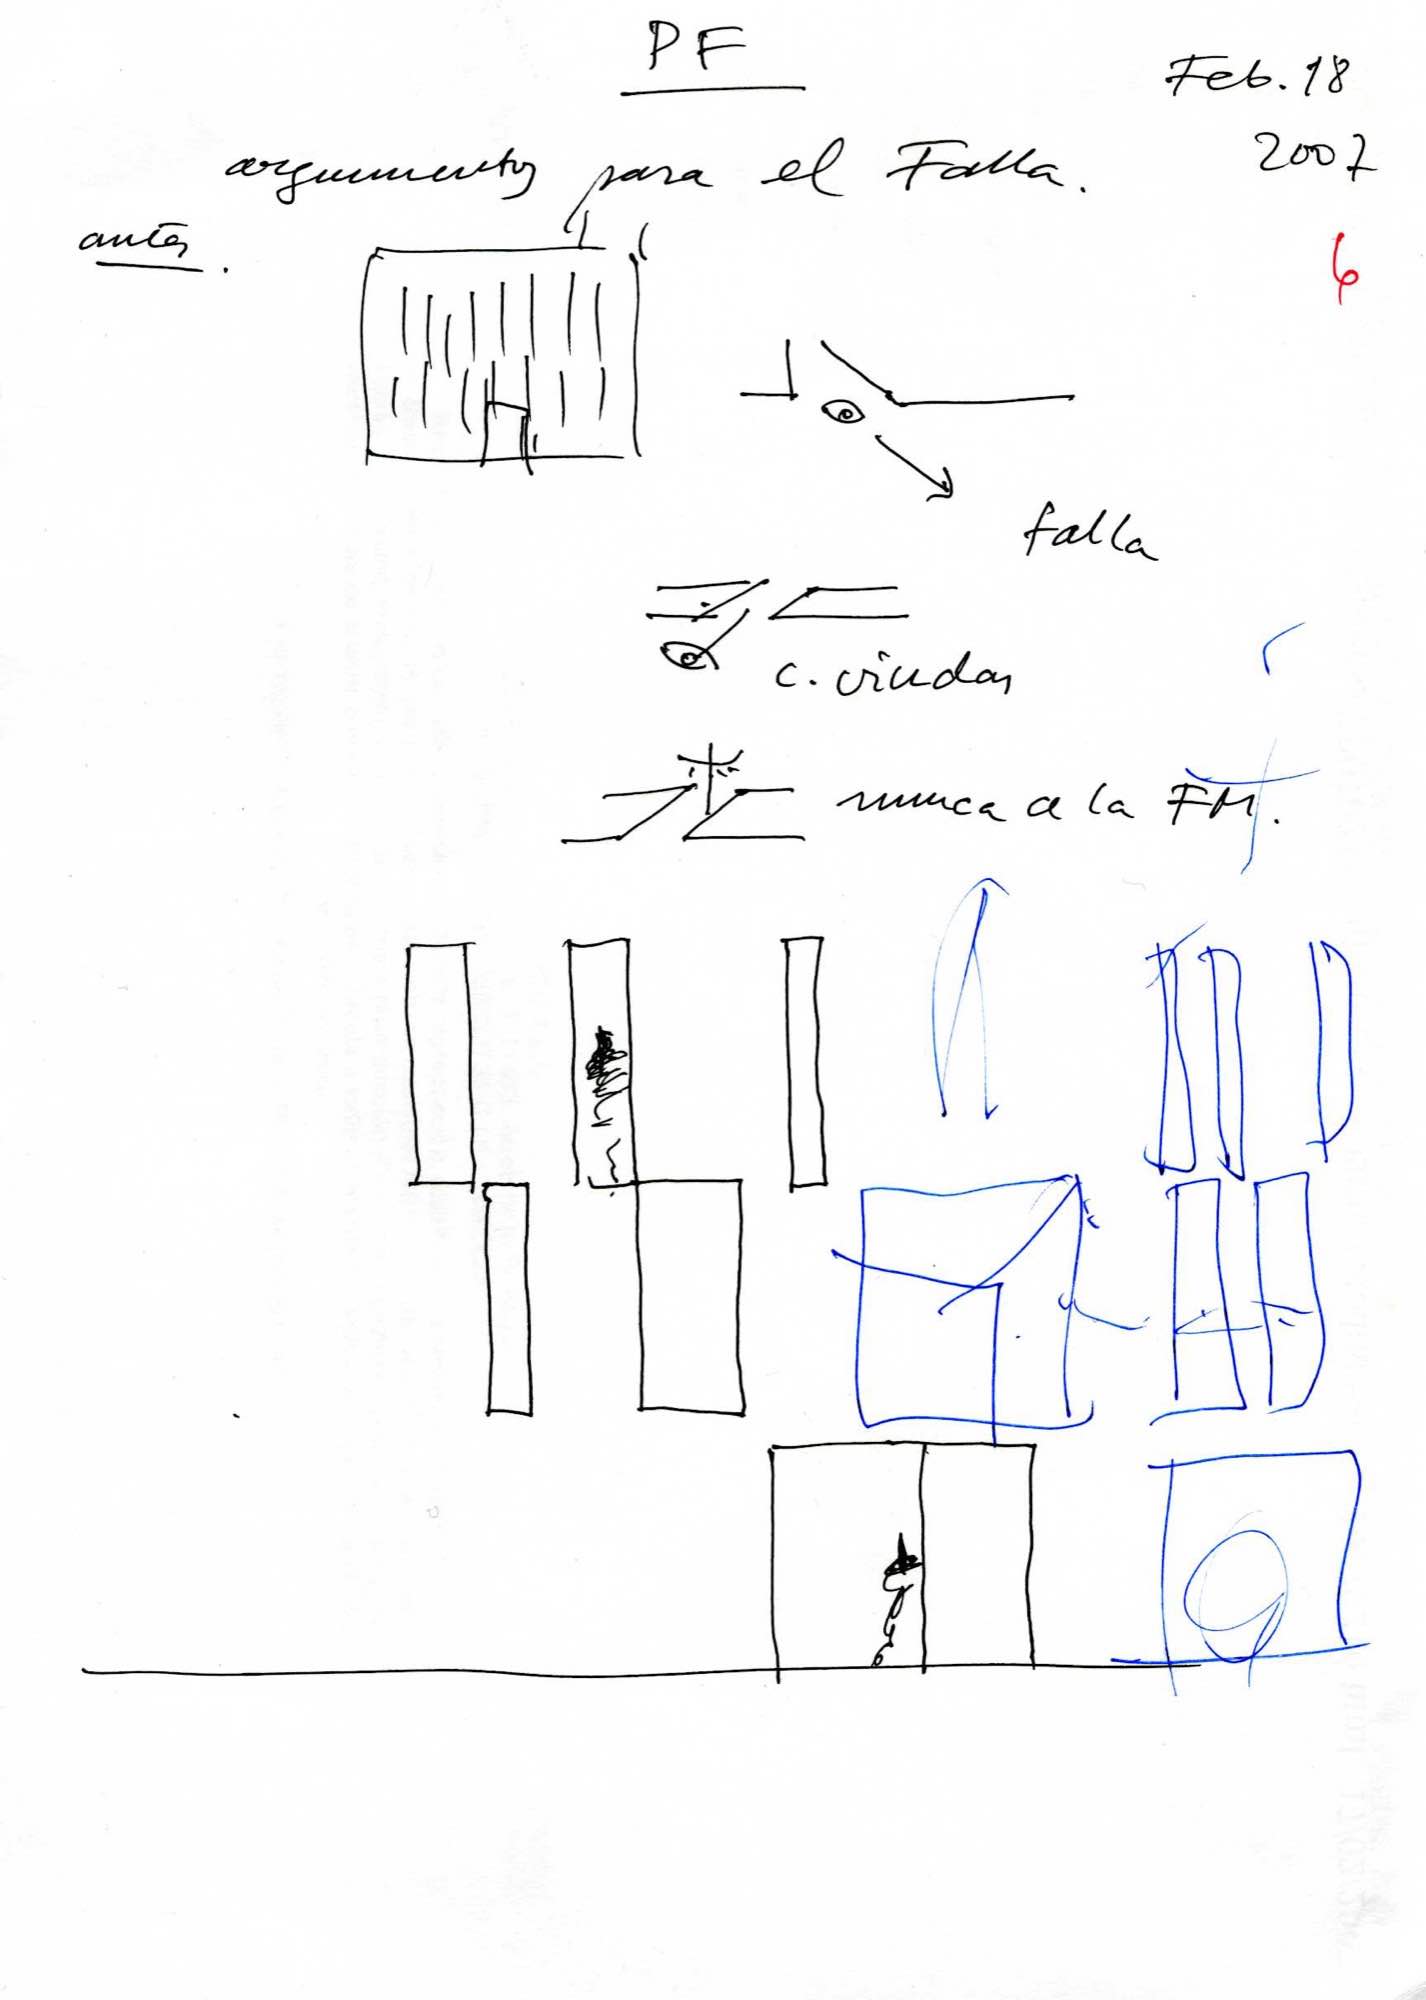 PF
Feb. 18
2007
argumentos para el Falla.
antes.
6
falla
c. viudas
nunca a la FM.